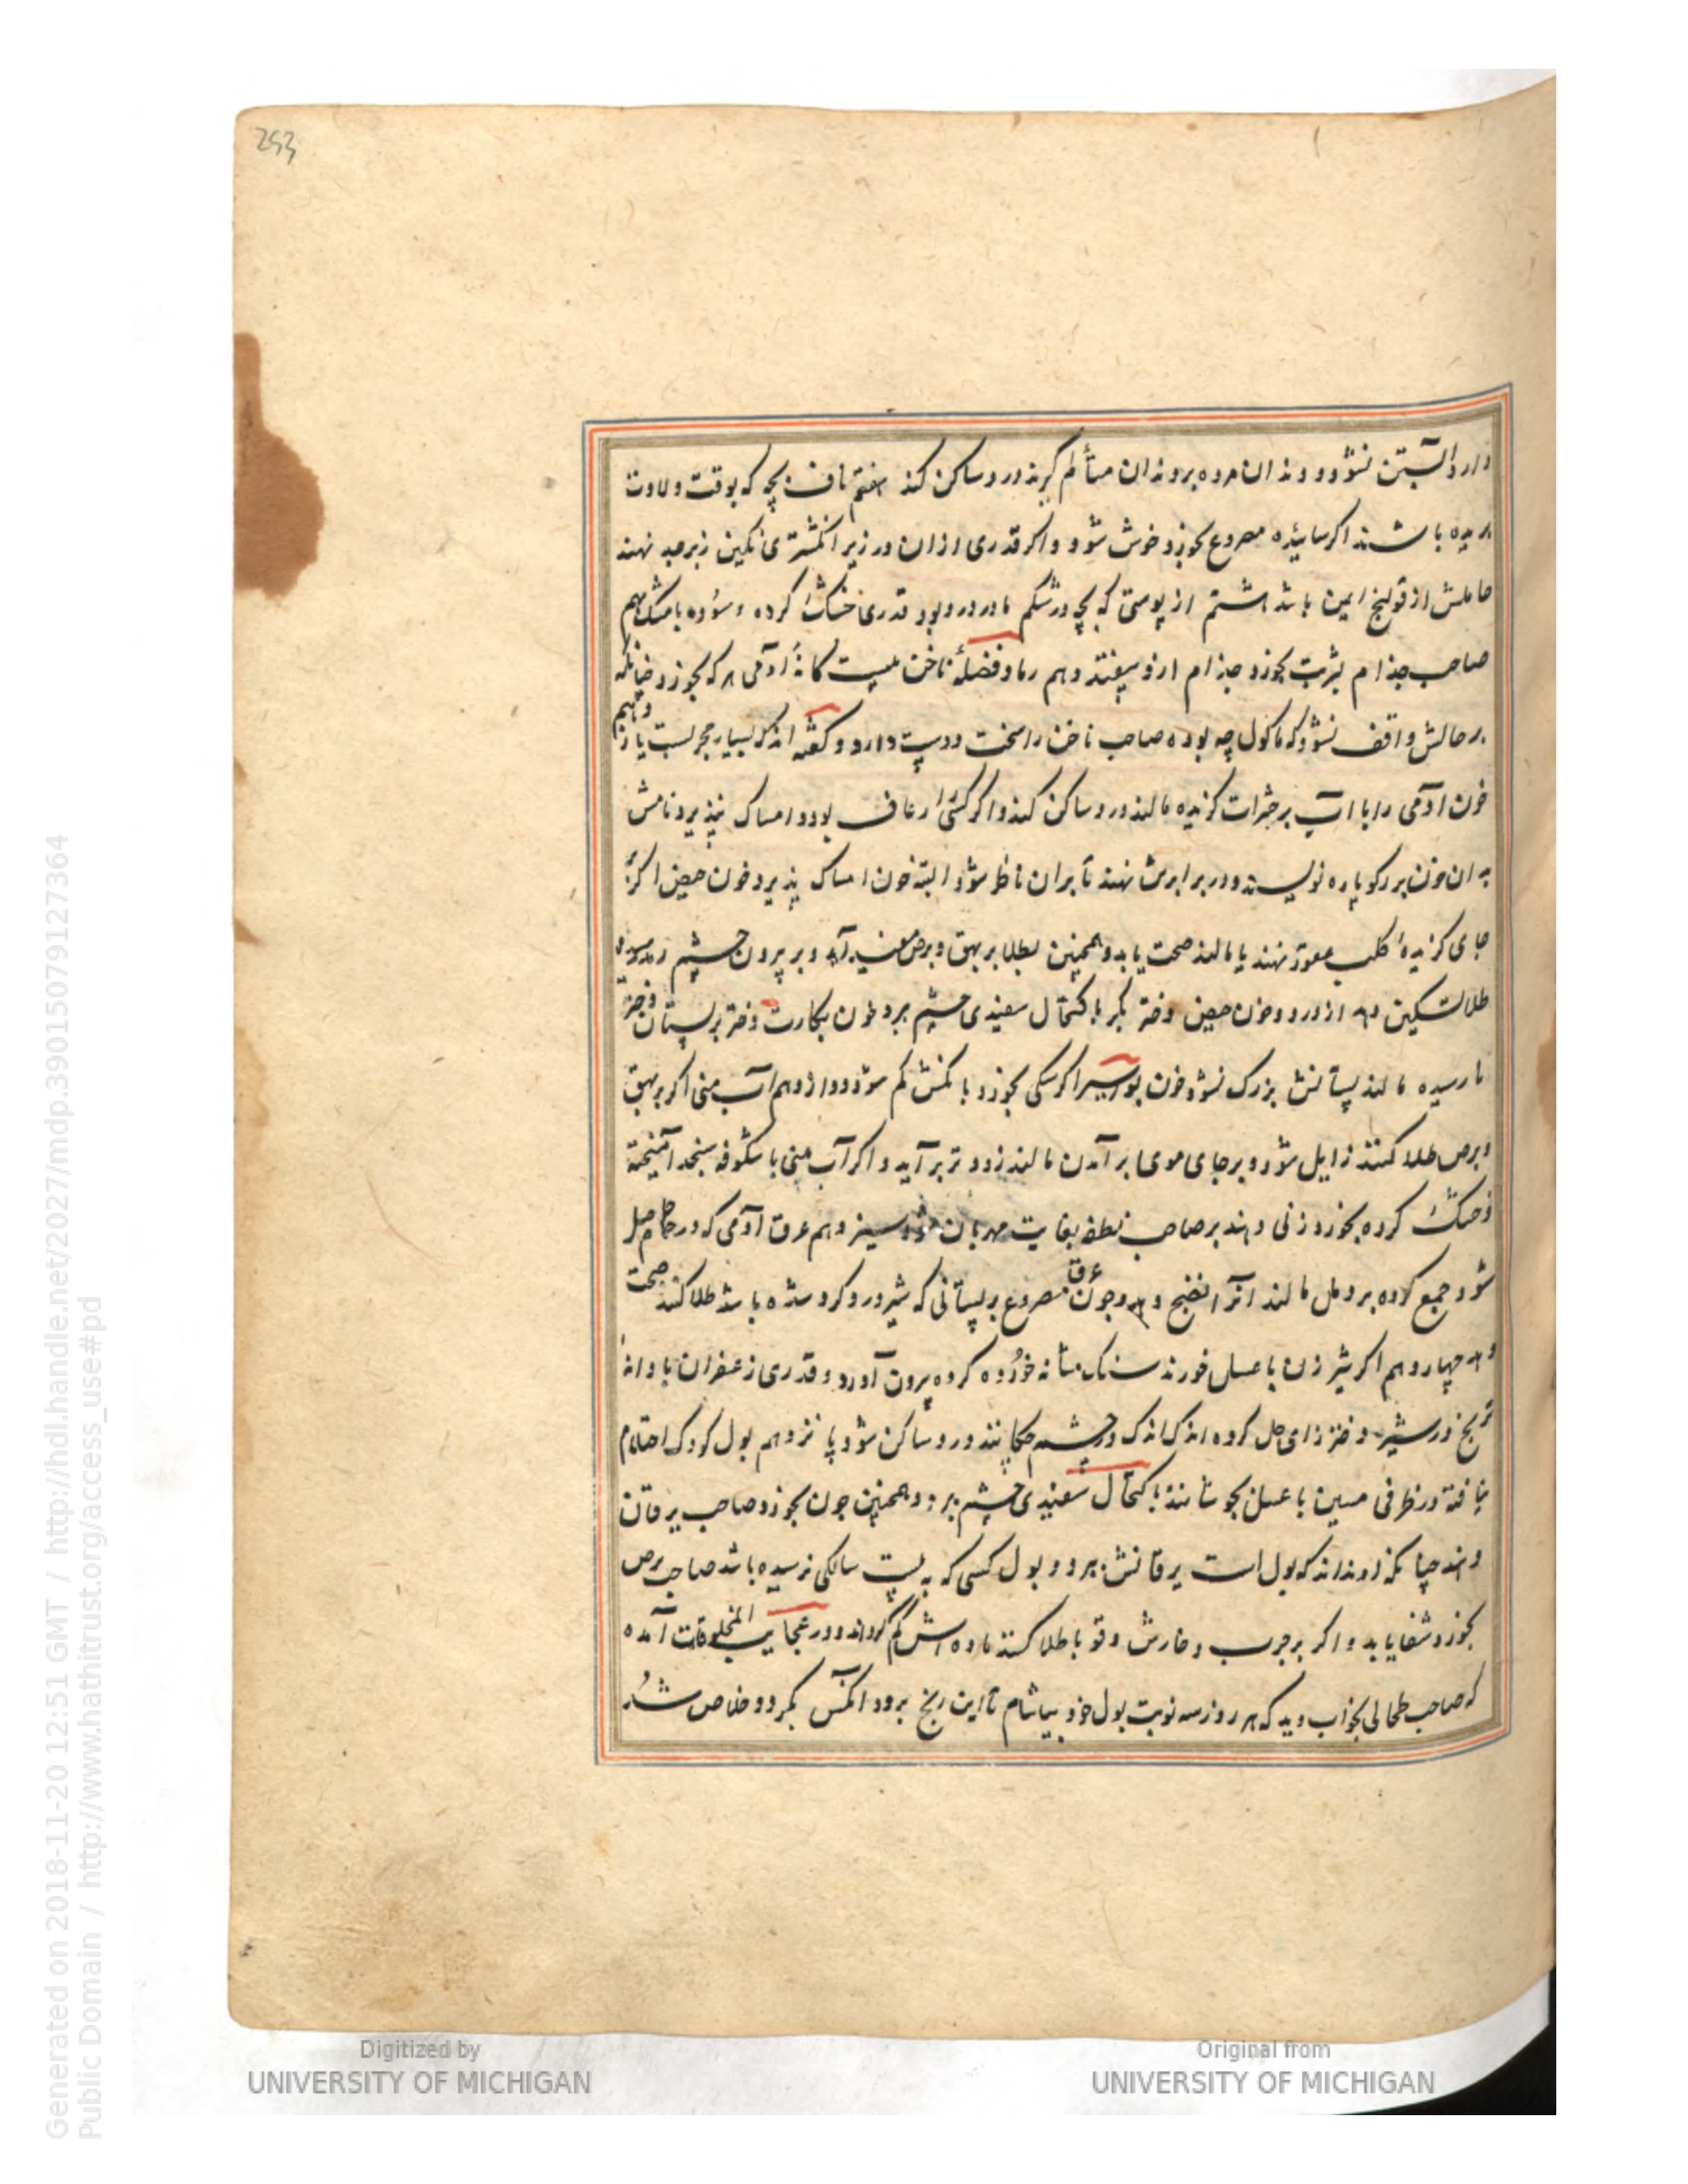 253
دارد آبستن نشود و دندان مرده بر دندان متألم گیرند درد ساکن کند هفتم ناف بچه که بوقت ولادت
بریده باشند اگر سائیده مصروع بخورد خوش شود و اگر قدری ازان در زیر انگشتری نگین زبرجد نهند
حاملش از قولنج ایمن باشد هشتم از پوستی که بچه در شکم مادر درو بود قدری خشک کرده و سوده با مشک بهم
صاحب جذام بشربت بخورد جذام ازو بیفتد و هم رماد فضلهٔ ناخن بیست کانهٔ آدمی هر که بخورد چنانکه
بر حالش واقف نشود که ماکول چه بوده صاحب ناخن را سخت دوست دارد و گفته اند که بسیار مجربست یازدهم
خون آدمی را با آب بر حشرات گزیده مالند درد ساکن کند و اگر کسی را رعاف بود و امساک نپذیرد نامش
به ان خون بر رکوپاره نویسند و در برابرش نهند تا بران ناظر شود البته خون امساک پذیرد و خون حیض اگر بر
جای گزیدهٔ کلب عقور نهند یا مالند صحت یابد و همچنین بطلا بر بهق و برص مفید آید و بر بیرون چشم
طلا تسکین دهد از درد و خون حیض دختر بکر باکتحال سفیدی چشم ببرد خون بکارت دختر بر پستان دختر
نارسیده مالند پستانش بزرگ نشود خون بواسیر اگر سگی بخورد بانگش کم شود دوازدهم آب منی اگر بر بهق
و برص طلا کنند زایل شود و بر جای موی برآمدن مالند زودتر برآید و اگر آب منی با شکوفه سنجد آمیخته
و خشک کرده بخورد زنی دهند بر صاحب نطفه بغایت مهربان شود سیزدهم عرق آدمی که در حمام حاصل
شود جمع کرده بر دمل مالند انرا نضج دهد و چون عرق مصروع بر پستانی که شیر درو کرد شده باشد طلا کنند صحت
دهد چهاردهم اگر شیر زن با عسل خورند سنگ مثانه خورده کرده بیرون آورد و قدری زعفران با دانهٔ
ترنج در شیر دختر زای حل کرده اندک اندک در چشم چکانند درد ساکن شود پانزدهم بول کودک احتلام
نیافته در ظرفی مسین با عسل بجوشانند باکتحال سفیدی چشم ببرد و همچنین چون بخورد صاحب یرقان
دهند چنانکه او نداند که بول است یرقانش ببرد و بول کسی که به بیست سالگی نرسیده باشد صاحب برص
بخورد شفا یابد و اگر بر جرب و خارش و قوبا طلا کنند ماده اش کم گرداند و در عجایب المخلوقات آمده
که صاحب طحالی بخواب دید که هر روز سه نوبت بول خود بیاشام تا این رنج برود آنکس بکرد و خلاص شد
Generated on 2018-11-20 12:51 GMT / http://hdl.handle.net/2027/mdp.39015079127364
Public Domain / http://www.hathitrust.org/access_use#pd
Digitized by
UNIVERSITY OF MICHIGAN
Original from
UNIVERSITY OF MICHIGAN